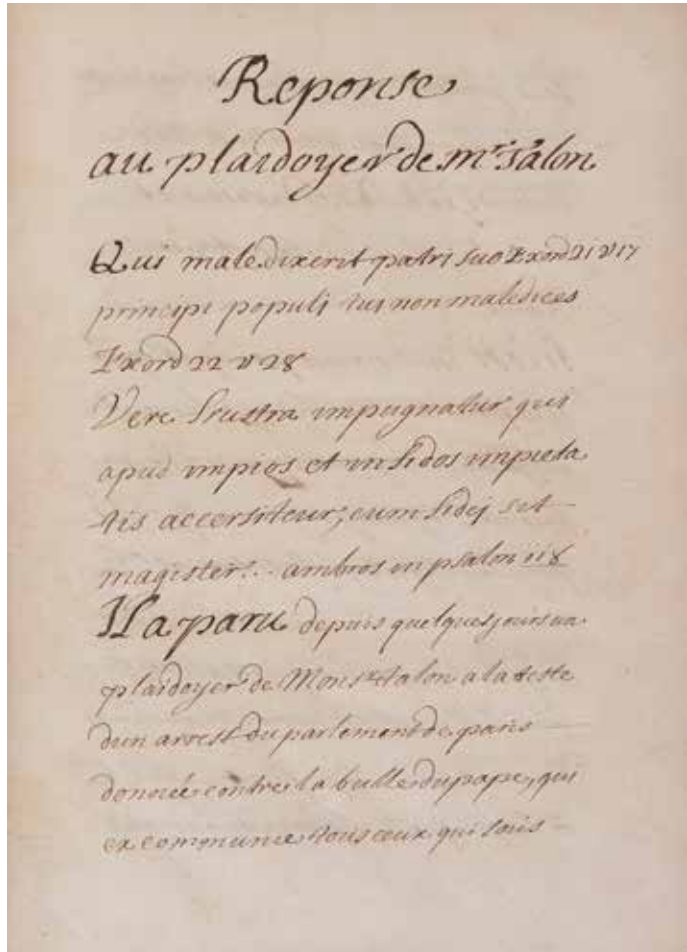 Reponse
au plaidoyer de mr. talon
Qui maledixerit patri suo Exord 21 v 17
principi populi tui non maledices
Exord 22 v 28
Vere frustra impugnatur qui
apud impios et infidos impieta
tis accersiteur, cum fidej sit
magister... ambros in psalon 118
Il a paru depuis quelques jours un
plaidoyer de Monsr talon a la teste
dun arrest du parlement de paris
donnée contre la bulle du pape, qui
excommunie tous ceux qui sous